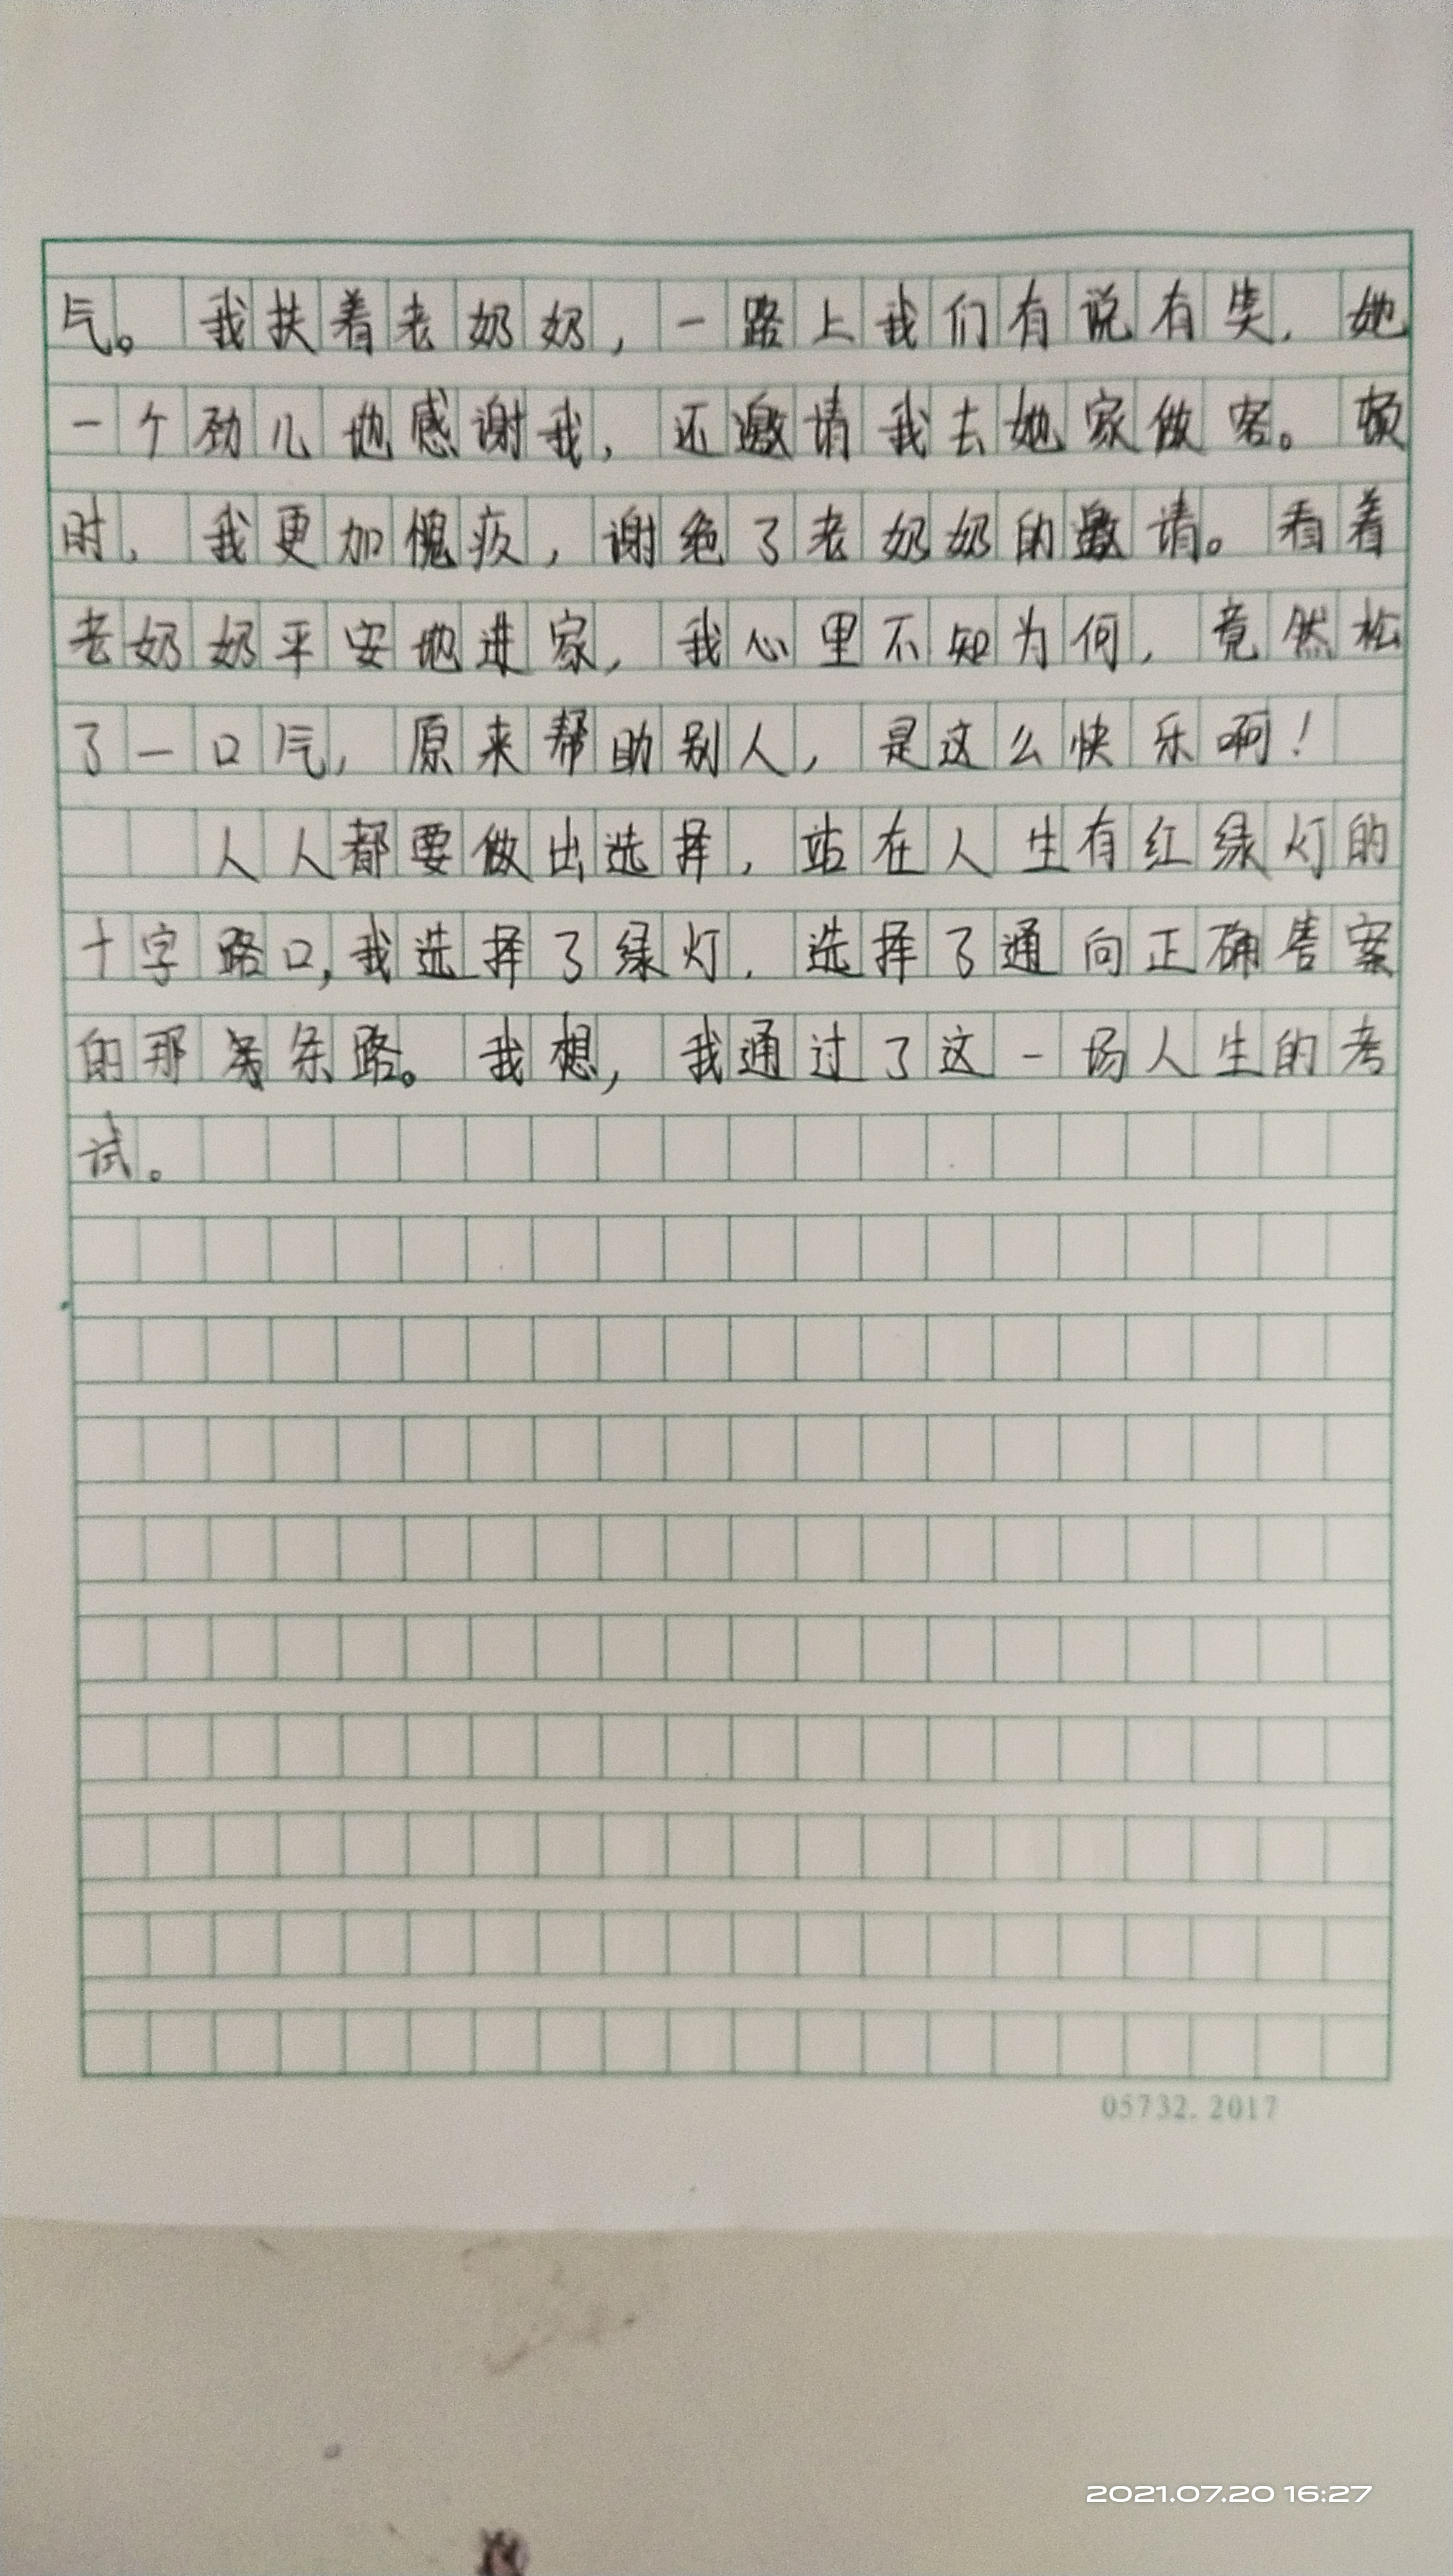 气。我扶着老奶奶，一路上我们有说有笑，她
一个劲儿地感谢我，还邀请我去她家做客。顿
时，我更加愧疚，谢绝了老奶奶的邀请。看着
老奶奶平安地进家，我心里不知为何，竟然松
了一口气，原来帮助别人，是这么快乐啊！
人人都要做出选择，站在人生有红绿灯的
十字路口，我选择了绿灯，选择了通向正确答案
的那条路。我想，我通过了这一场人生的考
试。
05732.2017
2021.07.20 16:27